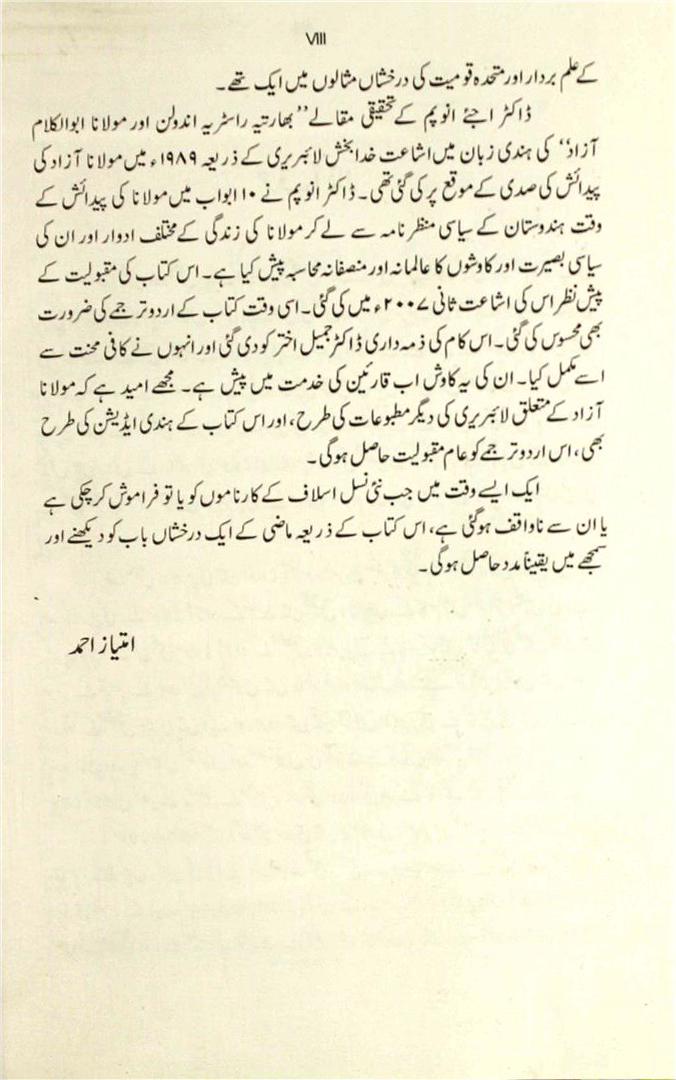 VIII
کے علم بردار اور متحدہ قومیت کی درخشاں مثالوں میں ایک تھے۔
ڈاکٹر اجئے انوپم کے تحقیقی مقالے ’’بھارتیہ راسٹریہ اندولن اور مولانا ابوالکلام
آزاد‘‘ کی ہندی زبان میں اشاعت خدا بخش لائبریری کے ذریعہ ۱۹۸۹ء میں مولانا آزاد کی
پیدائش کی صدی کے موقع پر کی گئی تھی۔ ڈاکٹر انوپم نے ۱۰ ابواب میں مولانا کی پیدائش کے
وقت ہندوستان کے سیاسی منظر نامہ سے لے کر مولانا کی زندگی کے مختلف ادوار اور ان کی
سیاسی بصیرت اور کاوشوں کا عالمانہ اور منصفانہ محاسبہ پیش کیا ہے۔ اس کتاب کی مقبولیت کے
پیش نظر اس کی اشاعت ثانی ۲۰۰۷ء میں کی گئی۔ اسی وقت کتاب کے اردو ترجمے کی ضرورت
بھی محسوس کی گئی۔ اس کام کی ذمہ داری ڈاکٹر جمیل اختر کو دی گئی اور انہوں نے کافی محنت سے
اسے مکمل کیا۔ ان کی یہ کاوش اب قارئین کی خدمت میں پیش ہے۔ مجھے امید ہے کہ مولانا
آزاد کے متعلق لائبریری کی دیگر مطبوعات کی طرح، اور اس کتاب کے ہندی ایڈیشن کی طرح
بھی، اس اردو ترجمے کو عام مقبولیت حاصل ہوگی۔
ایک ایسے وقت میں جب نئی نسل اسلاف کے کارناموں کو یا تو فراموش کر چکی ہے
یا ان سے ناواقف ہوگئی ہے، اس کتاب کے ذریعہ ماضی کے ایک درخشاں باب کو دیکھنے اور
سمجھے میں یقیناً مدد حاصل ہوگی۔
امتیاز احمد